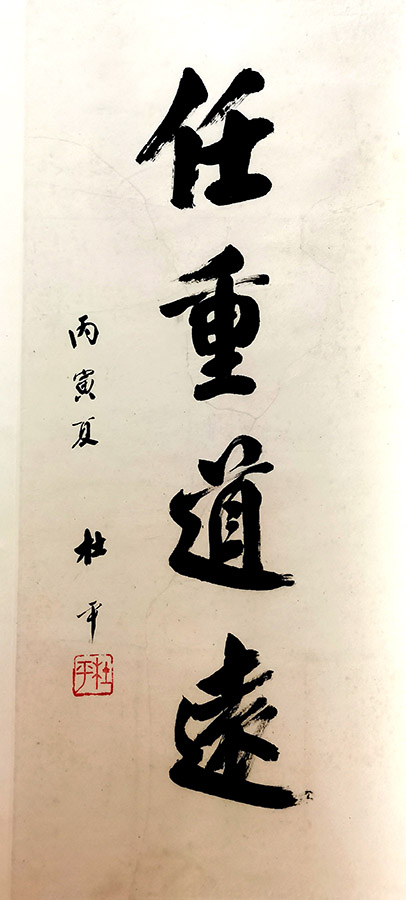 任重道远
丙寅夏
杜平
杜平